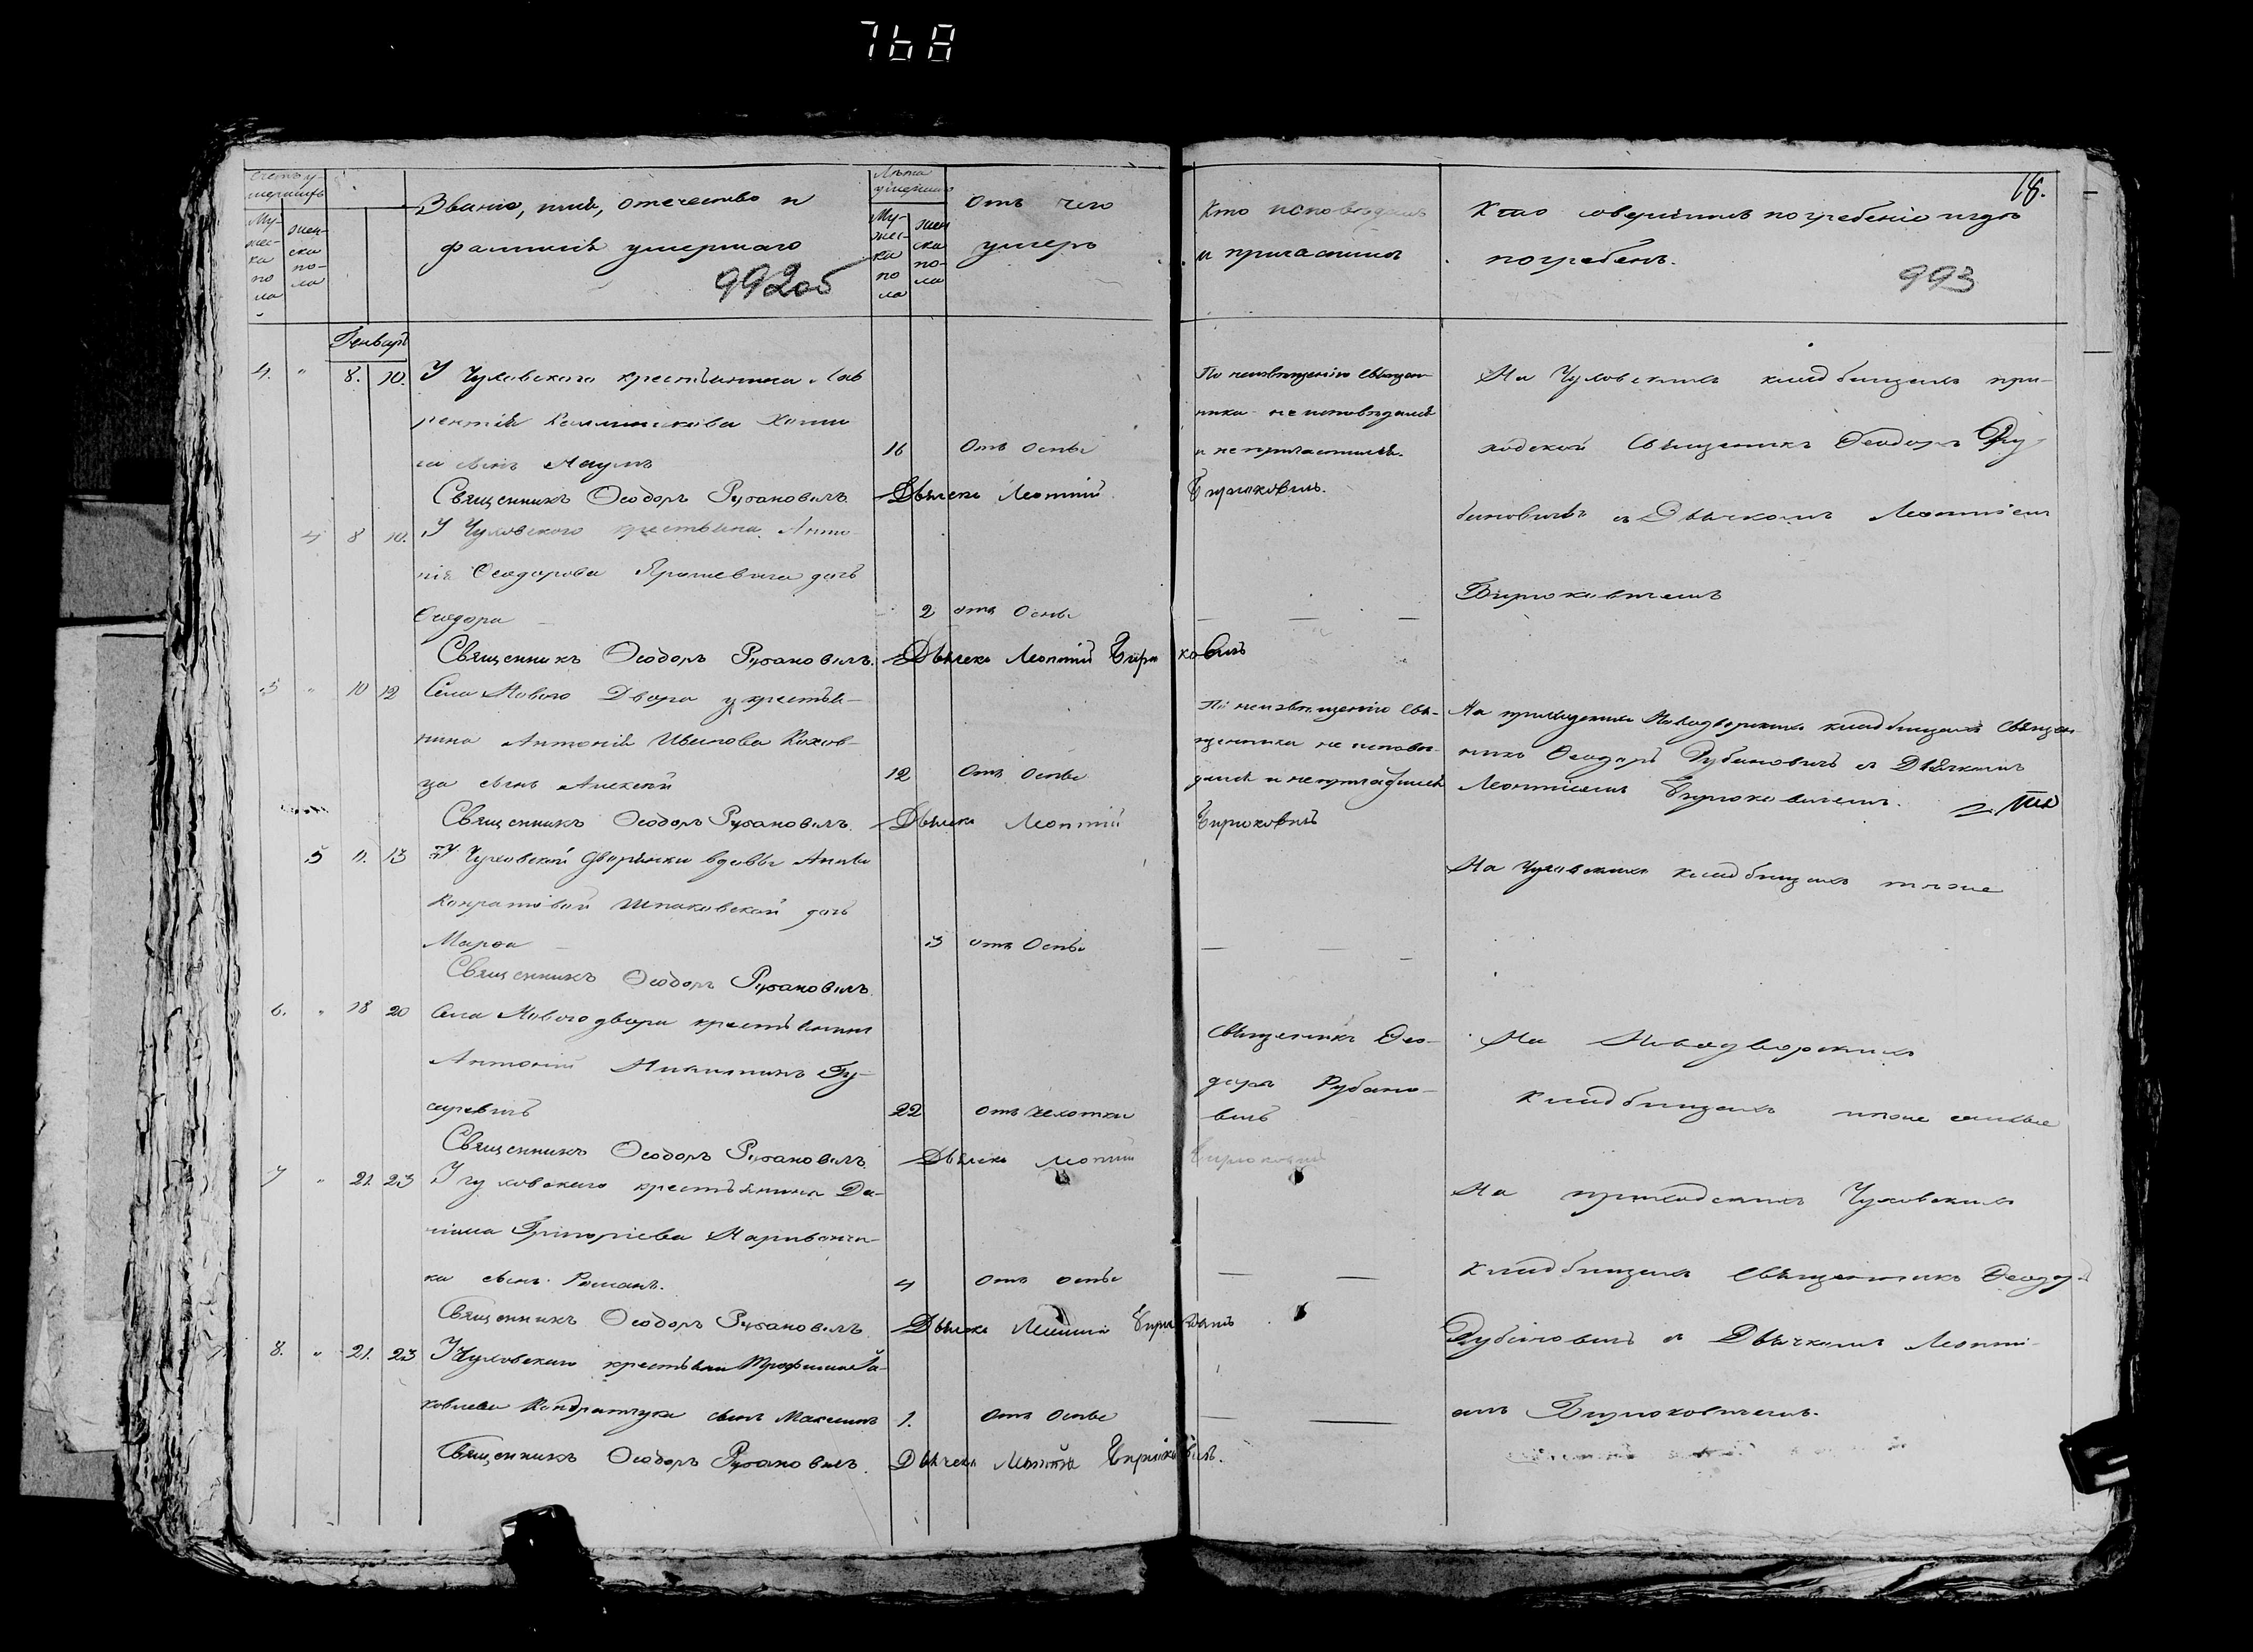 768
18.
Звание, имя, отечество и
фамилія умершаго
992об
Отъ чего
умеръ
Кто исповѣдалъ
и пріобщилъ
Кто совершилъ погребеніе и гдѣ
погребенъ.
993
Му-
жес-
ка
по
ла
жен-
ска
по-
ла
Лѣта
умершаго
Му-
жес-
ка
по
ла
жен
ска
по-
ла
Генварь
4. " 8. 10. У Чуховского крестьянина Лав
рентія
сынъ Наумъ 16 Отъ Оспы
По неизвѣщенію Священ
ника не исповѣдался
и не причастился.
На Чуховскомъ кладбищѣ при-
ходской Священикъ Феодоръ Ру
бановичъ съ Дьячкомъ Леонтіем
Бирюковичемъ
Священникъ Ѳеодоръ Рубановичъ. Дьячекъ Леонтій Бирюковичъ.
4 8 10. У Чуховского крестьяна Анто-
нія Феодорова Ярошевича дочь
Феодора 2 отъ Оспы
Священникъ Ѳеодоръ Рубановичъ. Дьячекъ Леонтій Бирюковичъ
5 " 10 12 Села Нового Двора у крестья-
нина Антонія Иванова Кохов-
ца сынъ Алексей 12 Отъ Оспы
По неизвѣщенію Свя-
щенника не исповѣ-
дался и не причастился
На приходскихъ Новодворскихъ кладбищахъ Священ
никъ Феодоръ Рубановичъ съ Дьячкомъ
Леонтіемъ Бирюковичемъ.
Священникъ Ѳеодоръ Рубановичъ. Дьячекъ Леонтій Бирюковичъ
5 11. 13 У Чуховской Дворянки вдовы Анны
Шпаковской дочь
Марѳа 3 отъ Оспы
На Чуховскихъ кладбищахъ тѣже
Священникъ Ѳеодоръ Рубановичъ.
6. " 18 20 Села Нового двора крестьянинъ
Антоній Никитинъ Гу-
саревичъ 22 отъ чехотки
Священикъ Фео-
доръ Рубано-
вичъ
На Новодворскихъ
кладбищахъ тѣже самые
Священникъ Ѳеодоръ Рубановичъ Дьячекъ Леонтій Бирюковичъ
7 " 21. 23 У Чуховского крестьянина Да-
нила Григоріева
ка сынъ Романъ. 4 Отъ оспы
На приходскихъ Чуховскихъ
кладбищахъ Священникъ Феодоръ
Рубановичъ съ Дьячкомъ Леонті-
емъ Бирюковичемъ.
Священникъ Ѳеодоръ Рубановичъ. Дьячекъ Леонтій Бирюковичъ
8. " 21. 23 У Чуховского крестьяни Трофима Я-
ковлева Кондратчука сынъ Максимъ 1. Отъ Оспы
Священникъ Ѳеодоръ Рубановичъ. Дьячекъ Леонтій Бирюковичъ.